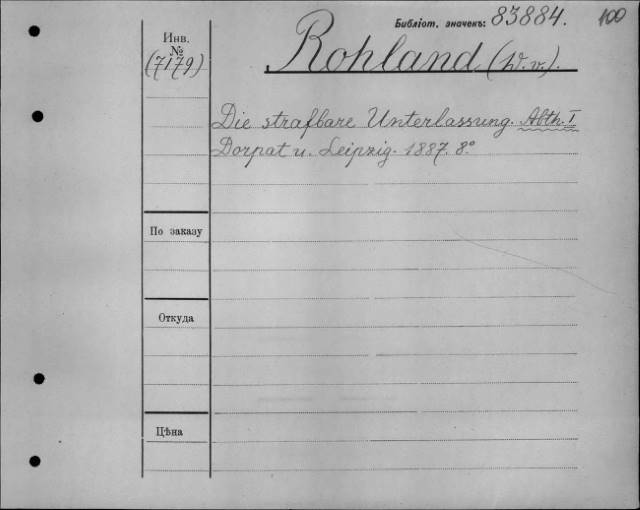 Библіот. значекъ: 83884. 100
Инв. Rohland (W. v.).
№
(7179)
Die strafbare Unterlassung. Abth. I
Dorpat u. Leipzig. 1887. 8º
По заказу
Откуда
Цѣна